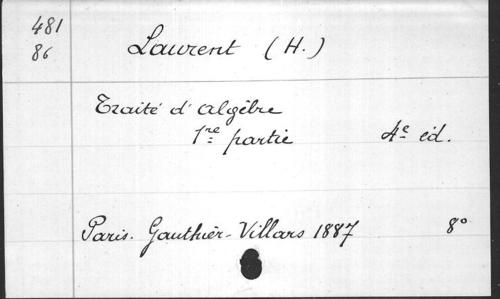 481
86
Laurent (H.)
Traité d'algèbre
1re partie 4e éd.
Paris. Gauthier-Villars 1887 8°